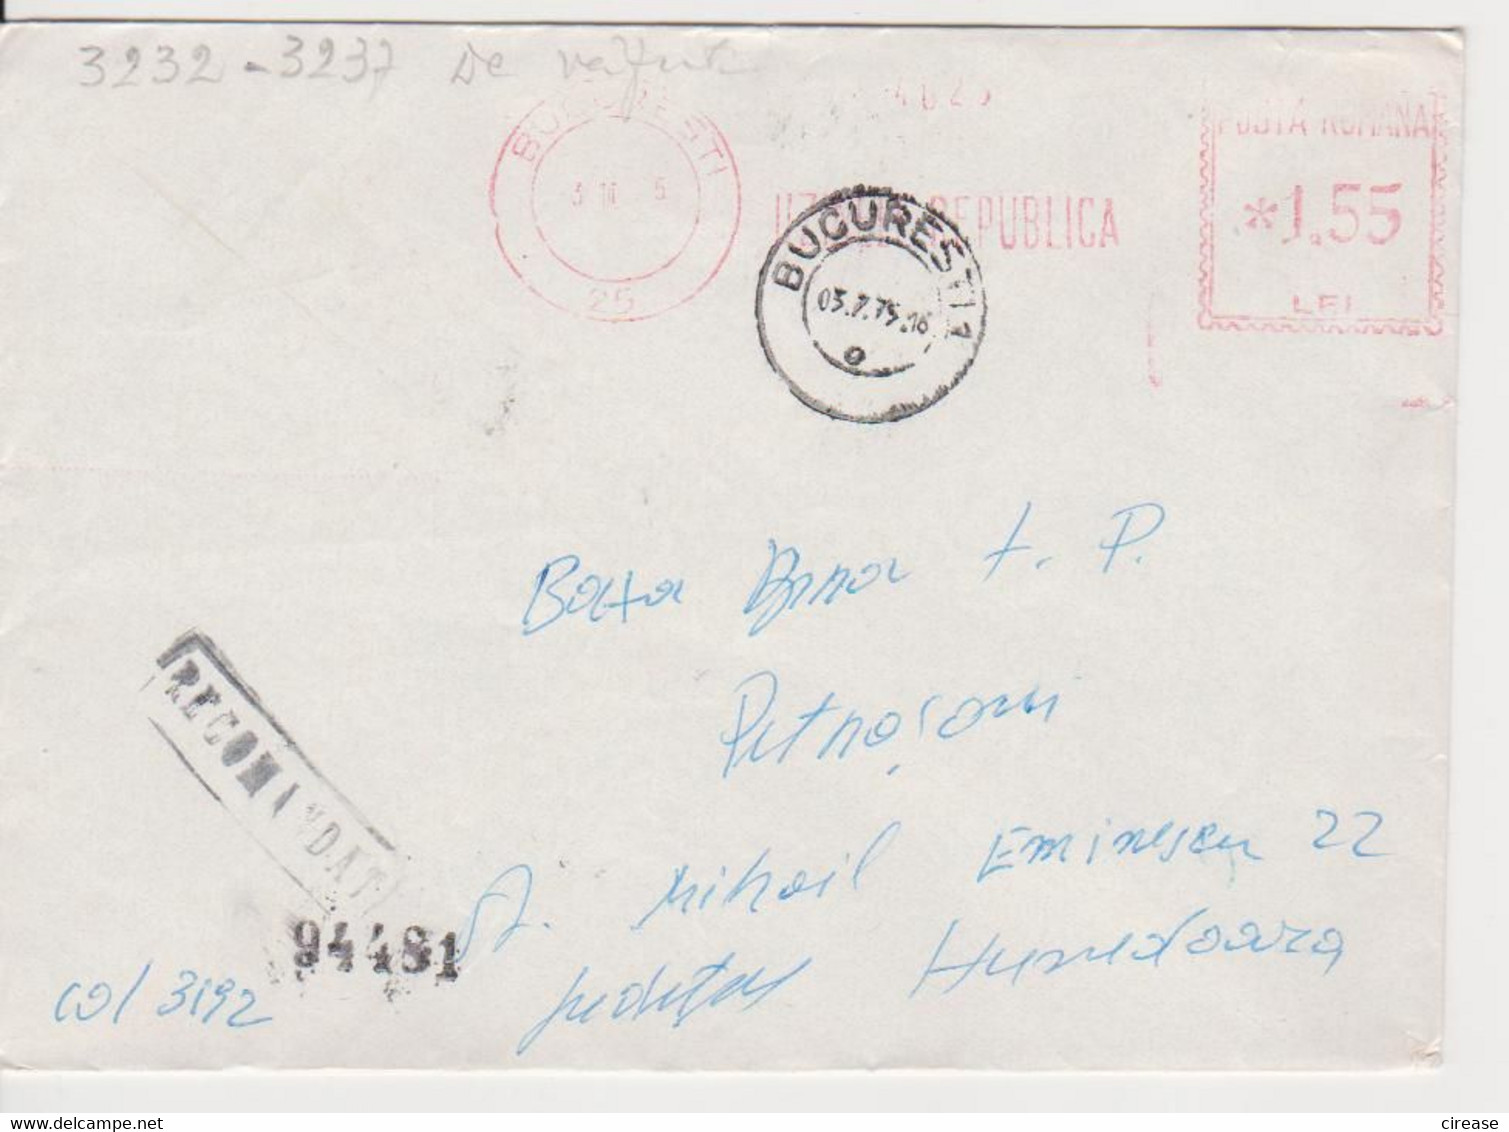 3232 - 3237 De
BUCURESTI
25
REPUBLICA
POSTA ROMANA
*1.55
LEI
BUCURESTI 1
03.7.75.16
Petroșani
St. Mihail Eminescu 22
județul Hunedoara
RECOMANDAT
94481
col 3192
www.delcampe.net
cirease